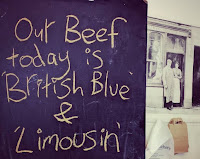 Our Beef
today is
'British Blue'
&
'Limousin'